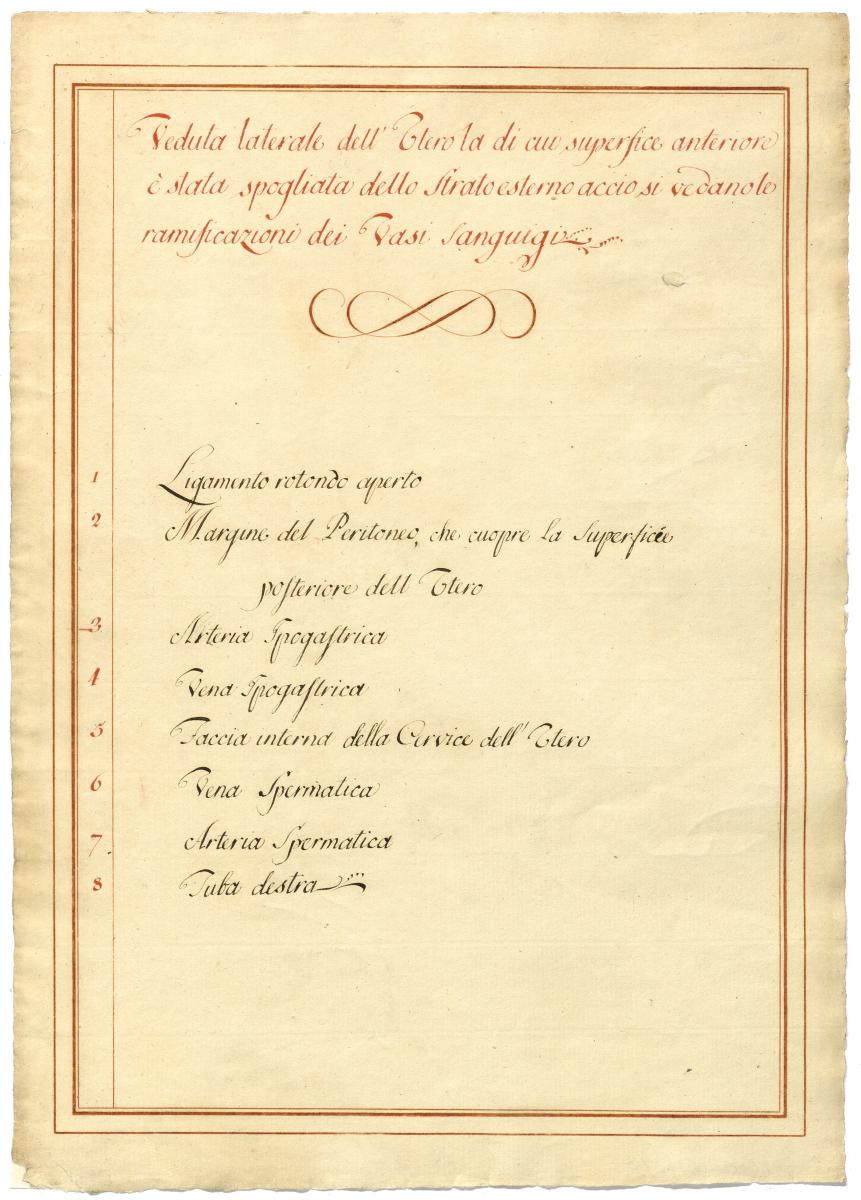 Veduta laterale dell' Utero la di cui superfice anteriore
è stata spogliata dello Strato esterno accio si vedano le
ramificazioni dei Vasi Sanguigi
1 Ligamento rotondo aperto
2 Margine del Peritoneo, che cuopre la Superficie
posteriore dell Utero
3 Arteria Ipogastrica
4 Vena Ipogastrica
5 Faccia interna della Cervice dell' Utero
6 Vena Spermatica
7. Arteria Spermatica
8 Tuba destra